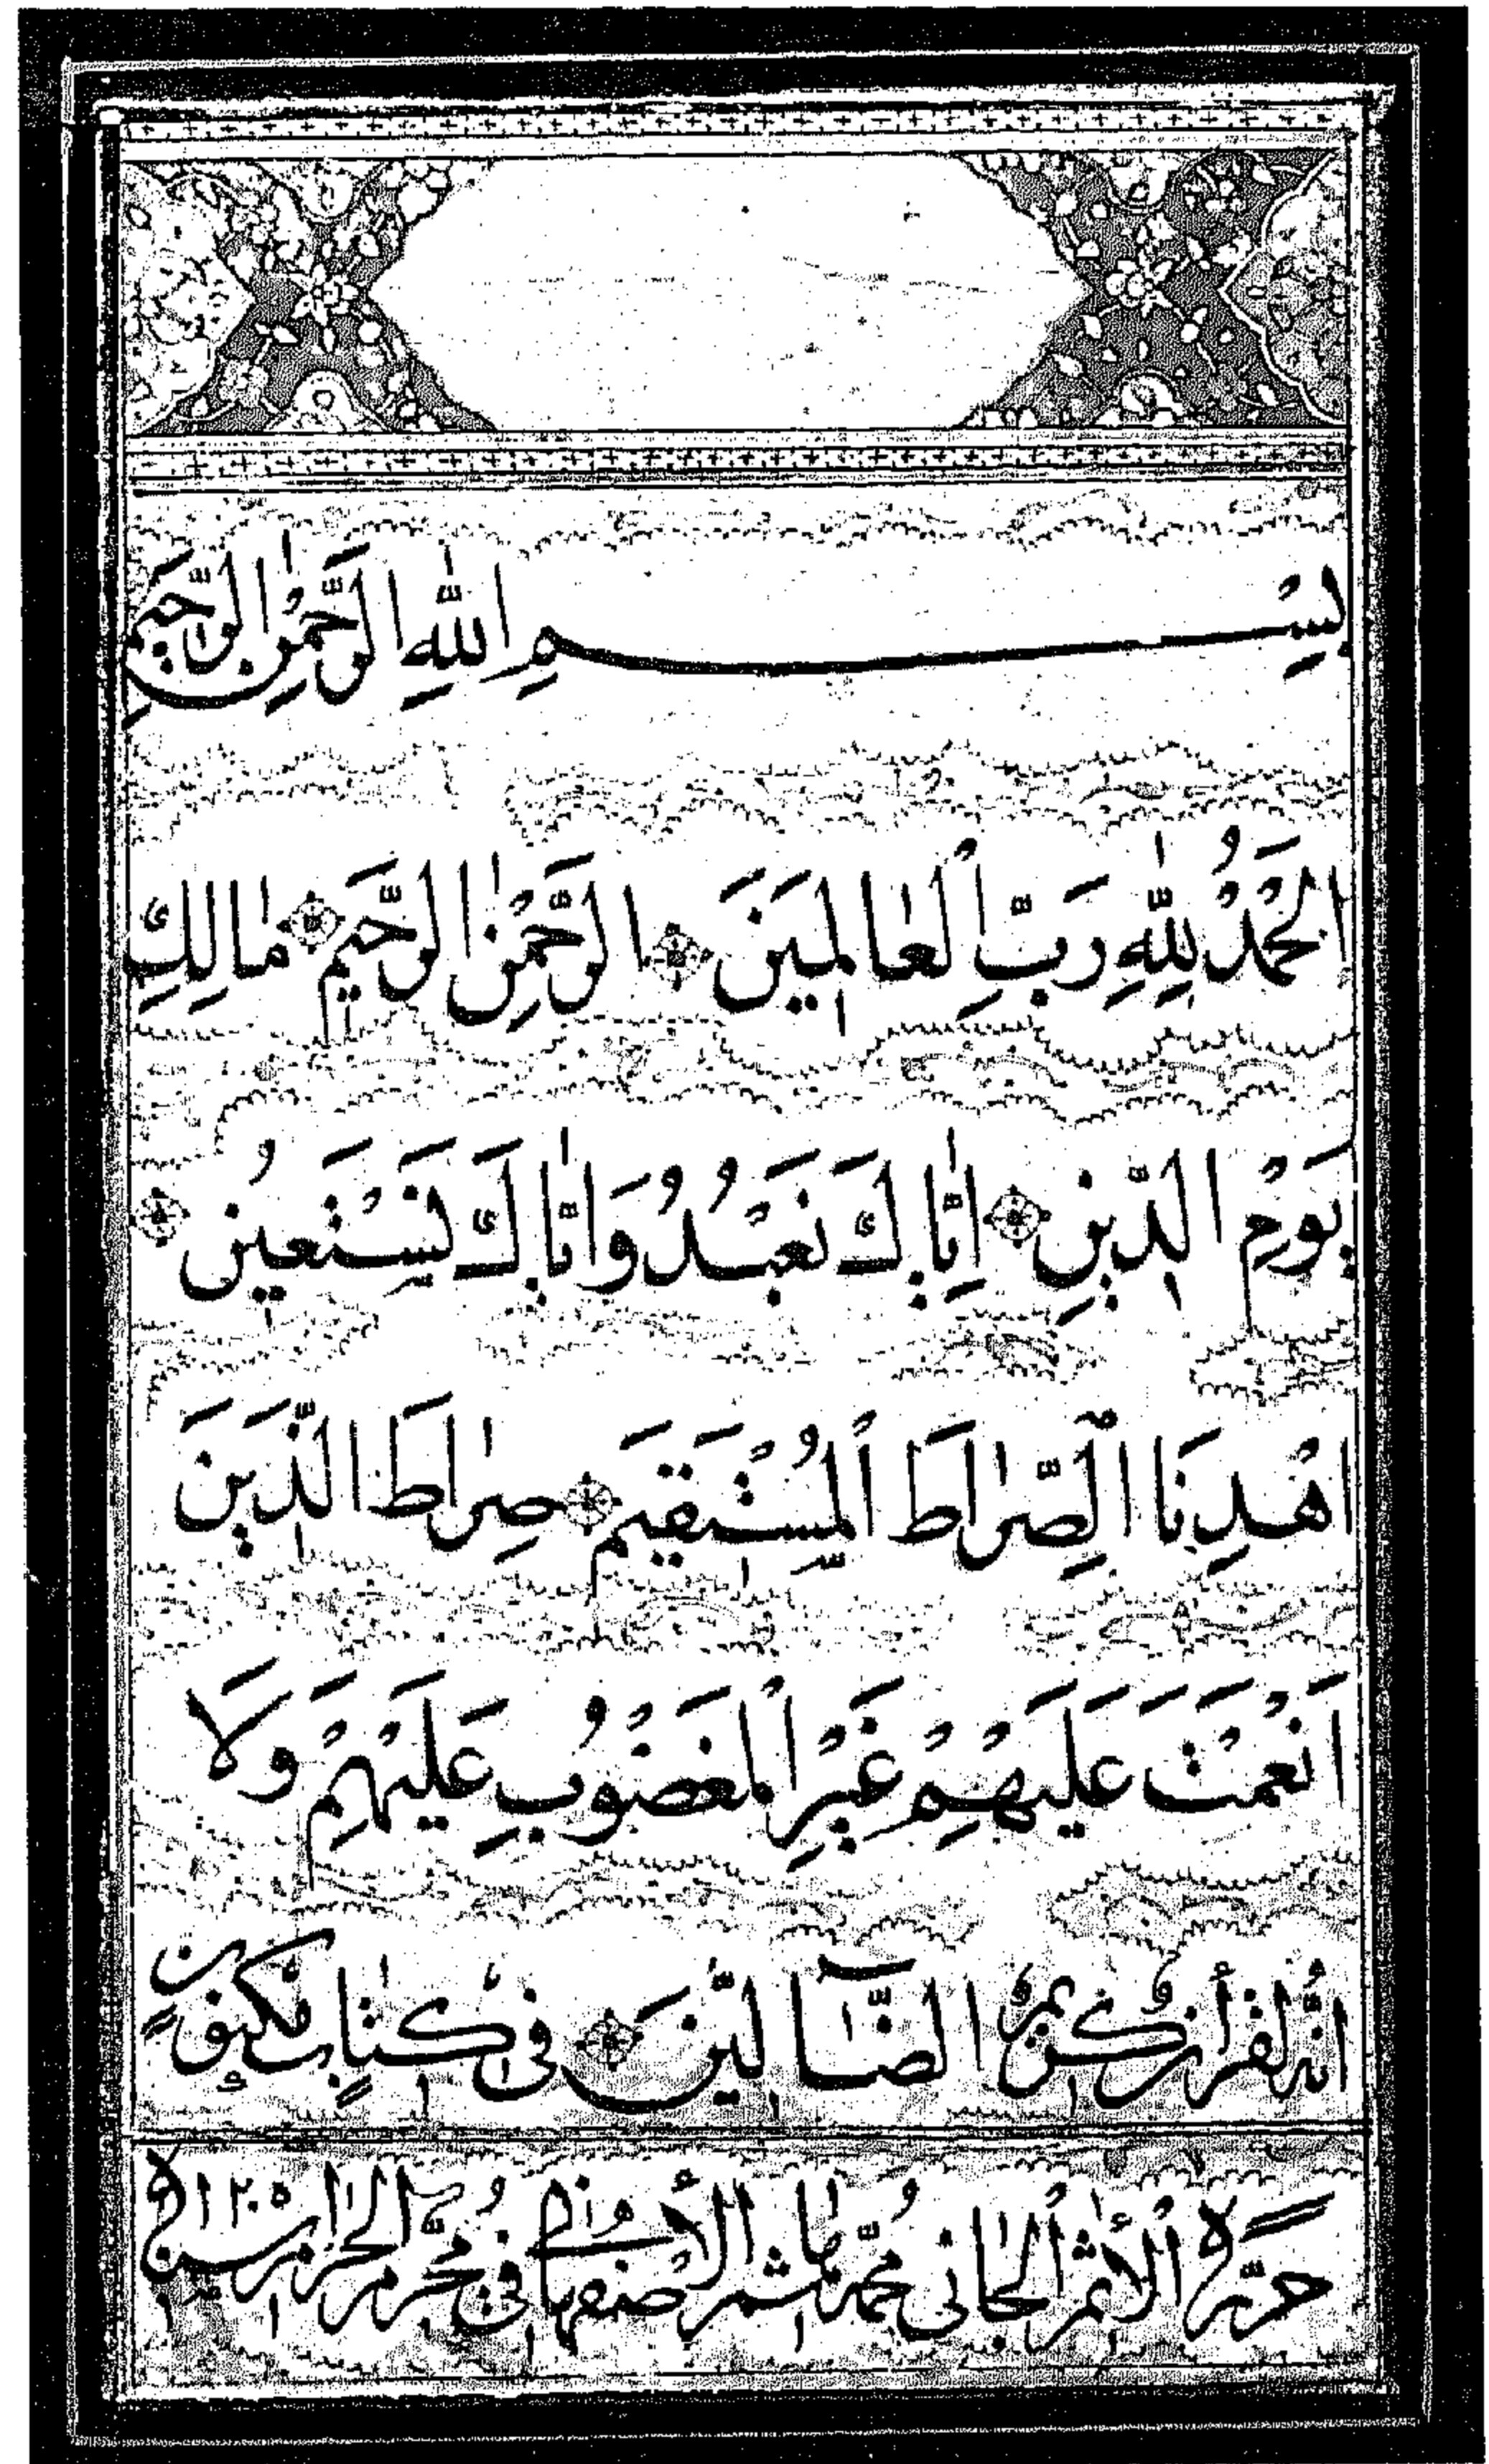 بِسْمِ اللّٰهِ الرَّحْمٰنِ الرَّحِيمِ
الْحَمْدُ لِلّٰهِ رَبِّ الْعٰالَمِينَ الرَّحْمٰنِ الرَّحِيمِ مٰالِكِ
يَوْمِ الدِّينِ اِيّٰاكَ نَعْبُدُ وَاِيّٰاكَ نَسْتَعِينُ
اهْدِنَا الصِّرٰاطَ الْمُسْتَقِيمَ صِرٰاطَ الَّذِينَ
اَنْعَمْتَ عَلَيْهِمْ غَيْرِ الْمَغْضُوبِ عَلَيْهِمْ وَلَا
انّه لقرأن كريم الضّٰٓالِّينَ فى كتٰابٍ مكنونٍ
حرّره الأثم الجانى محمّد هاشم الأصفهانى فى محرّم الحرام سنه ١٢٠٥